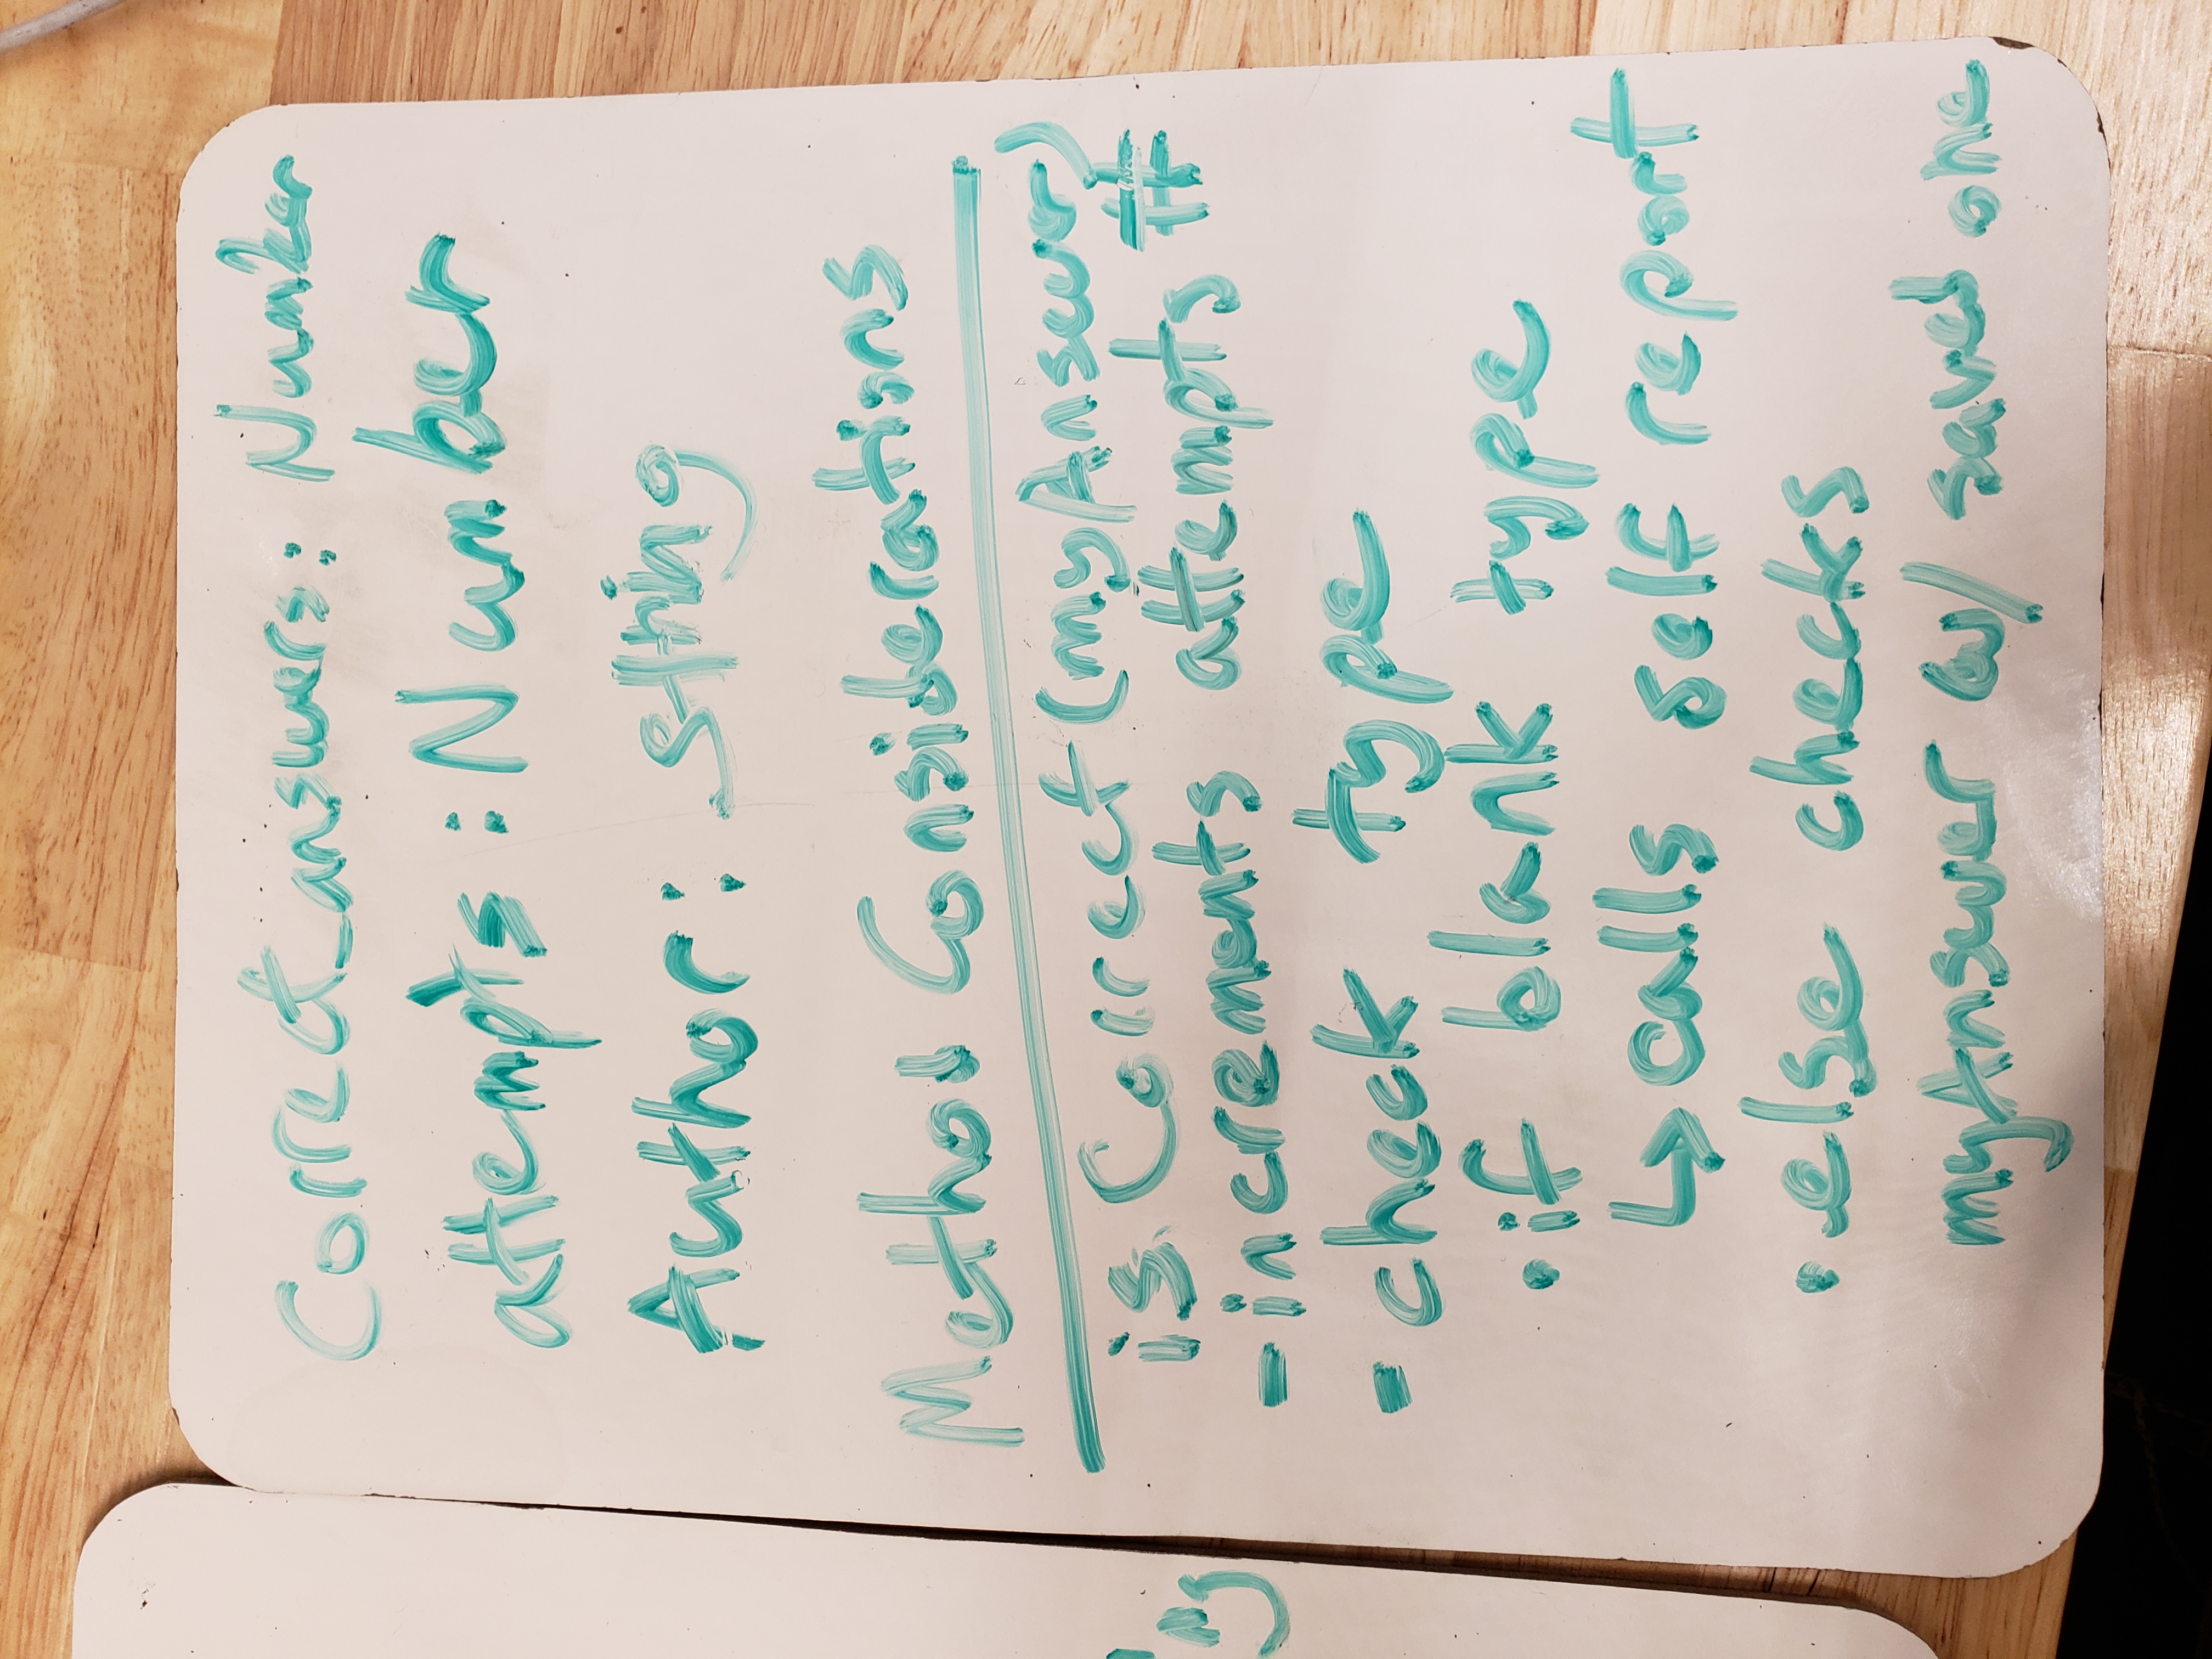 Correct_answers: Number
attempts: Number
Author: String
Method Considerations
isCorrect(myAnswer)
- increments attempts #
- check type
• if blank type
↳ calls self report
• else checks
myAnswer w/ saved one